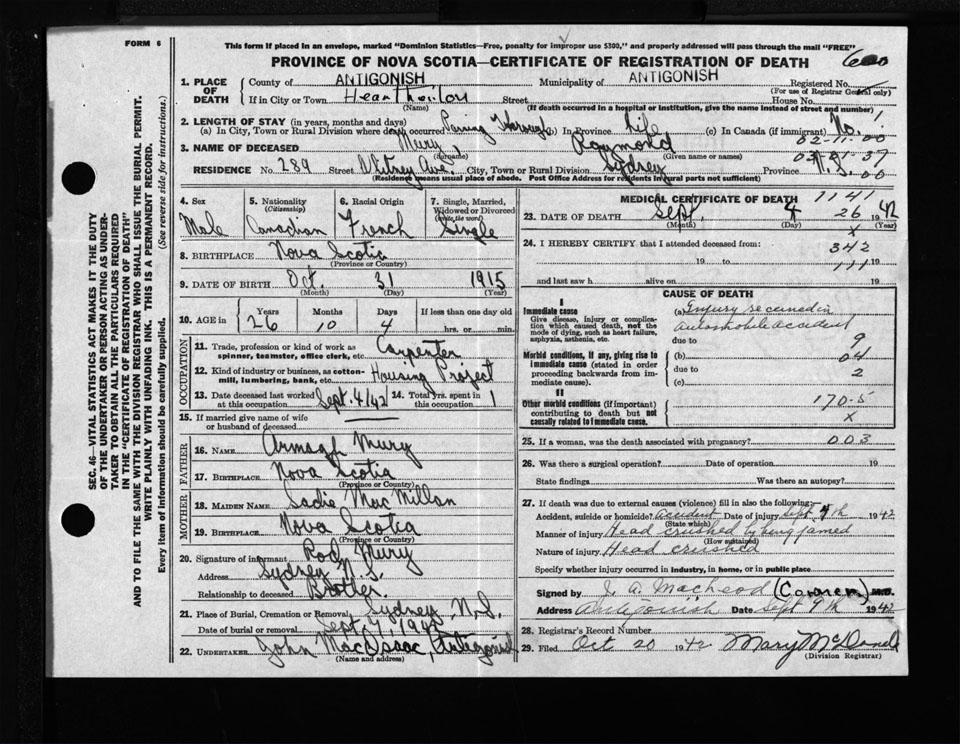 FORM 6
This form if placed in an envelope, marked "Dominion Statistics—Free, penalty for improper use $300," and properly addressed will pass through the mail "FREE"
PROVINCE OF NOVA SCOTIA—CERTIFICATE OF REGISTRATION OF DEATH
1. PLACE OF DEATH
County of ANTIGONISH Municipality of ANTIGONISH Registered No.
(For use of Registrar General only)
If in City or Town Street House No.
(Name) (If death occurred in a hospital or institution, give the name instead of street and number)
2. LENGTH OF STAY (in years, months and days)
(a) In City, Town or Rural Division where death occurred Passing through (b) In Province Life (c) In Canada (if immigrant) No.
02-11-00
3. NAME OF DECEASED Mury Raymond
(Surname) (Given name or names)
RESIDENCE No. 289 Street Whitney Ave. City, Town or Rural Division Sydney Province N.S.
(Residence means usual place of abode. Post Office Address for residents in rural parts not sufficient)
4. Sex Male
5. Nationality (Citizenship) Canadian
6. Racial Origin French
7. Single, Married, Widowed or Divorced (write the word) Single
8. BIRTHPLACE Nova Scotia
(Province or Country)
9. DATE OF BIRTH Oct. 31 1915
(Month) (Day) (Year)
10. AGE in Years 26 Months 10 Days 4 If less than one day old
hrs. or min.
OCCUPATION
11. Trade, profession or kind of work as spinner, teamster, office clerk, etc. Carpenter
12. Kind of industry or business, as cotton-mill, lumbering, bank, etc. Housing Project
13. Date deceased last worked at this occupation Sept. 4/42 14. Total yrs. spent in this occupation 1
15. If married give name of wife or husband of deceased
FATHER
16. NAME Armagh Mury
17. BIRTHPLACE Nova Scotia
(Province or Country)
MOTHER
18. MAIDEN NAME Sadie MacMillan
19. BIRTHPLACE Nova Scotia
(Province or Country)
20. Signature of informant Rod Mury
Address Sydney N.S.
Relationship to deceased Brother.
21. Place of Burial, Cremation or Removal Sydney N.S.
Date of burial or removal Sept. 7, 1942
22. UNDERTAKER John MacIsaac, Antigonish
(Name and address)
MEDICAL CERTIFICATE OF DEATH
1141
23. DATE OF DEATH Sept. 4 1942
26
(Month) (Day) (Year)
x
24. I HEREBY CERTIFY that I attended deceased from:
342
19 to 19
111
and last saw h alive on 19
CAUSE OF DEATH
I
Immediate cause
Give disease, injury or complication which caused death, not the mode of dying, such as heart failure, asphyxia, asthenia, etc.
(a) Injury received in
Automobile accident
due to 9
Morbid conditions, if any, giving rise to immediate cause (stated in order proceeding backwards from immediate cause).
(b) 04
due to 2
(c)
II
Other morbid conditions (if important) contributing to death but not causally related to immediate cause.
170-5
x
25. If a woman, was the death associated with pregnancy? 003
26. Was there a surgical operation? Date of operation 19
State findings Was there an autopsy?
27. If death was due to external causes (violence) fill in also the following:
Accident, suicide or homicide? accident Date of injury Sept 4th 1942
(State which)
Manner of injury Head crushed by being jamed
(How sustained)
Nature of injury Head crushed
Specify whether injury occurred in industry, in home, or in public place
Signed by J. A. MacLeod (Coroner) M.D.
Address Antigonish Date Sept 9th 1942
28. Registrar's Record Number
29. Filed Oct 20 1942
(Division Registrar)
SEC. 46—VITAL STATISTICS ACT MAKES IT THE DUTY
OF THE UNDERTAKER OR PERSON ACTING AS UNDER-
TAKER TO OBTAIN ALL THE PARTICULARS REQUIRED
IN THE "CERTIFICATE OF REGISTRATION OF DEATH"
AND TO FILE THE SAME WITH THE DIVISION REGISTRAR WHO SHALL ISSUE THE BURIAL PERMIT.
WRITE PLAINLY WITH UNFADING INK. THIS IS A PERMANENT RECORD.
Every item of information should be carefully supplied. (See reverse side for instructions.)